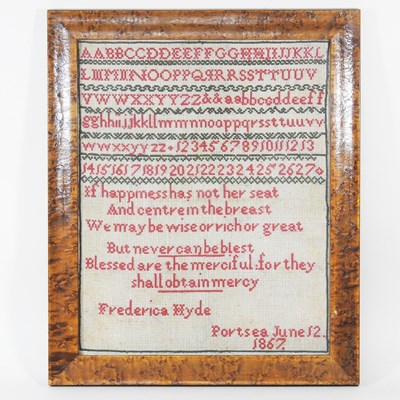 AABBCCDDEEFFGGHHIIJJKKL
LMMNNOOPPQRRRSSTTUUV
VWWXXYYZZ&&aabbccddeeff
gghhiijjkkllmmnnooppqrssttuuvv
wwxxyyzz 12345678910111213
1415161718192021222324252627
If happiness has not her seat
And centre in the breast
We may be wise or rich or great
But never can be blest
Blessed are the merciful: for they
shall obtain mercy
Frederica Hyde
Portsea June 12.
1867.